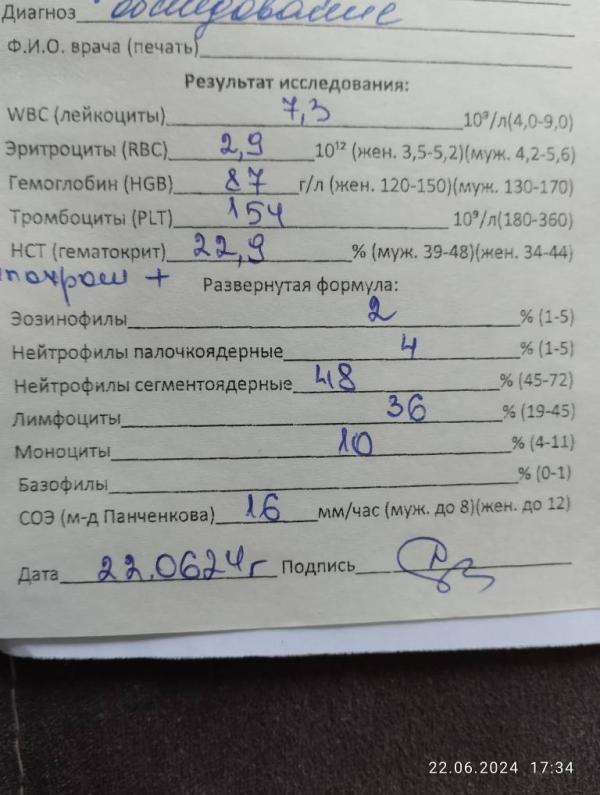 Диагноз обследование
Ф.И.О. врача (печать)
Результат исследования:
WBC (лейкоциты) 7,3 10⁹/л(4,0-9,0)
Эритроциты (RBC) 2,9 10¹² (жен. 3,5-5,2)(муж. 4,2-5,6)
Гемоглобин (HGB) 87 г/л (жен. 120-150)(муж. 130-170)
Тромбоциты (PLT) 154 10⁹/л(180-360)
НСТ (гематокрит) 22,9 % (муж. 39-48)(жен. 34-44)
+
Развернутая формула:
Эозинофилы 2 % (1-5)
Нейтрофилы палочкоядерные 4 % (1-5)
Нейтрофилы сегментоядерные 48 % (45-72)
Лимфоциты 36 % (19-45)
Моноциты 10 % (4-11)
Базофилы % (0-1)
СОЭ (м-д Панченкова) 16 мм/час (муж. до 8)(жен. до 12)
Дата 22.0624г Подпись
22.06.2024 17:34